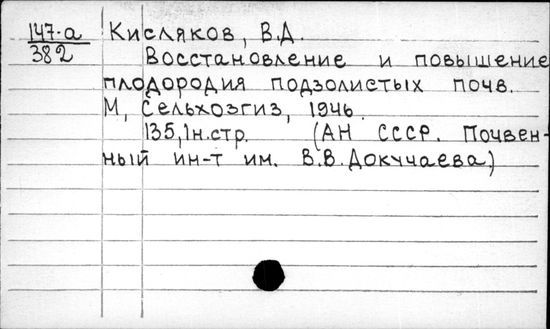 147-а Кисляков, В.Д.
382
Восстановление и повышение
плодородия подзолистых почв.
М, Сельхозгиз, 1946.
135,1н.стр. (АН СССР. Почвен-
ный ин-т им. В.В.Докучаева)